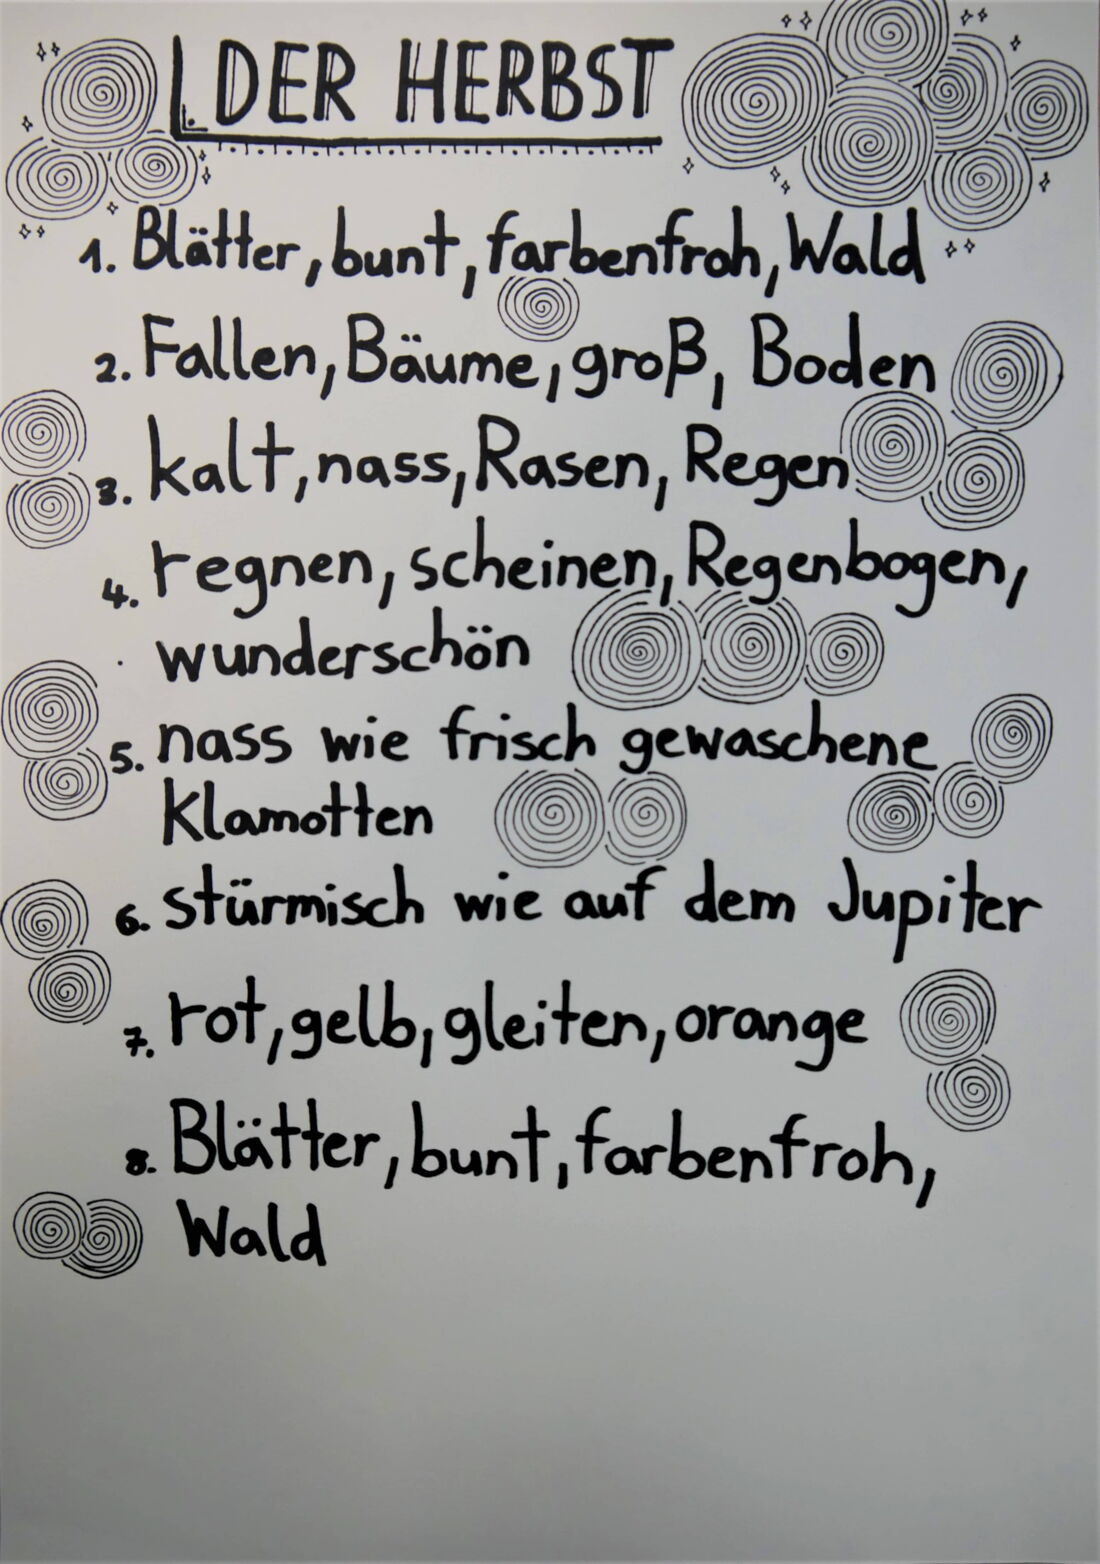 DER HERBST
1. Blätter, bunt, farbenfroh, Wald
2. Fallen, Bäume, groß, Boden
3. kalt, nass, Rasen, Regen
4. regnen, scheinen, Regenbogen,
wunderschön
5. nass wie frisch gewaschene
Klamotten
6. stürmisch wie auf dem Jupiter
7. rot, gelb, gleiten, orange
8. Blätter, bunt, farbenfroh,
Wald